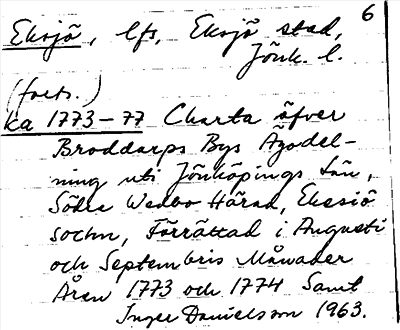 6
Eksjö, lfs, Eksjö stad,
Jönk. l.
(forts.)
ka 1773-77 Charta öfver
Broddarps Bys Ägodel-
ning uti Jönköpings Län,
Södra Wedbo Härad, Ekesiö
sochn, Förrättad i Augusti
och Septembris Månader
Åren 1773 och 1774 Samt
Inger Danielsson 1963.